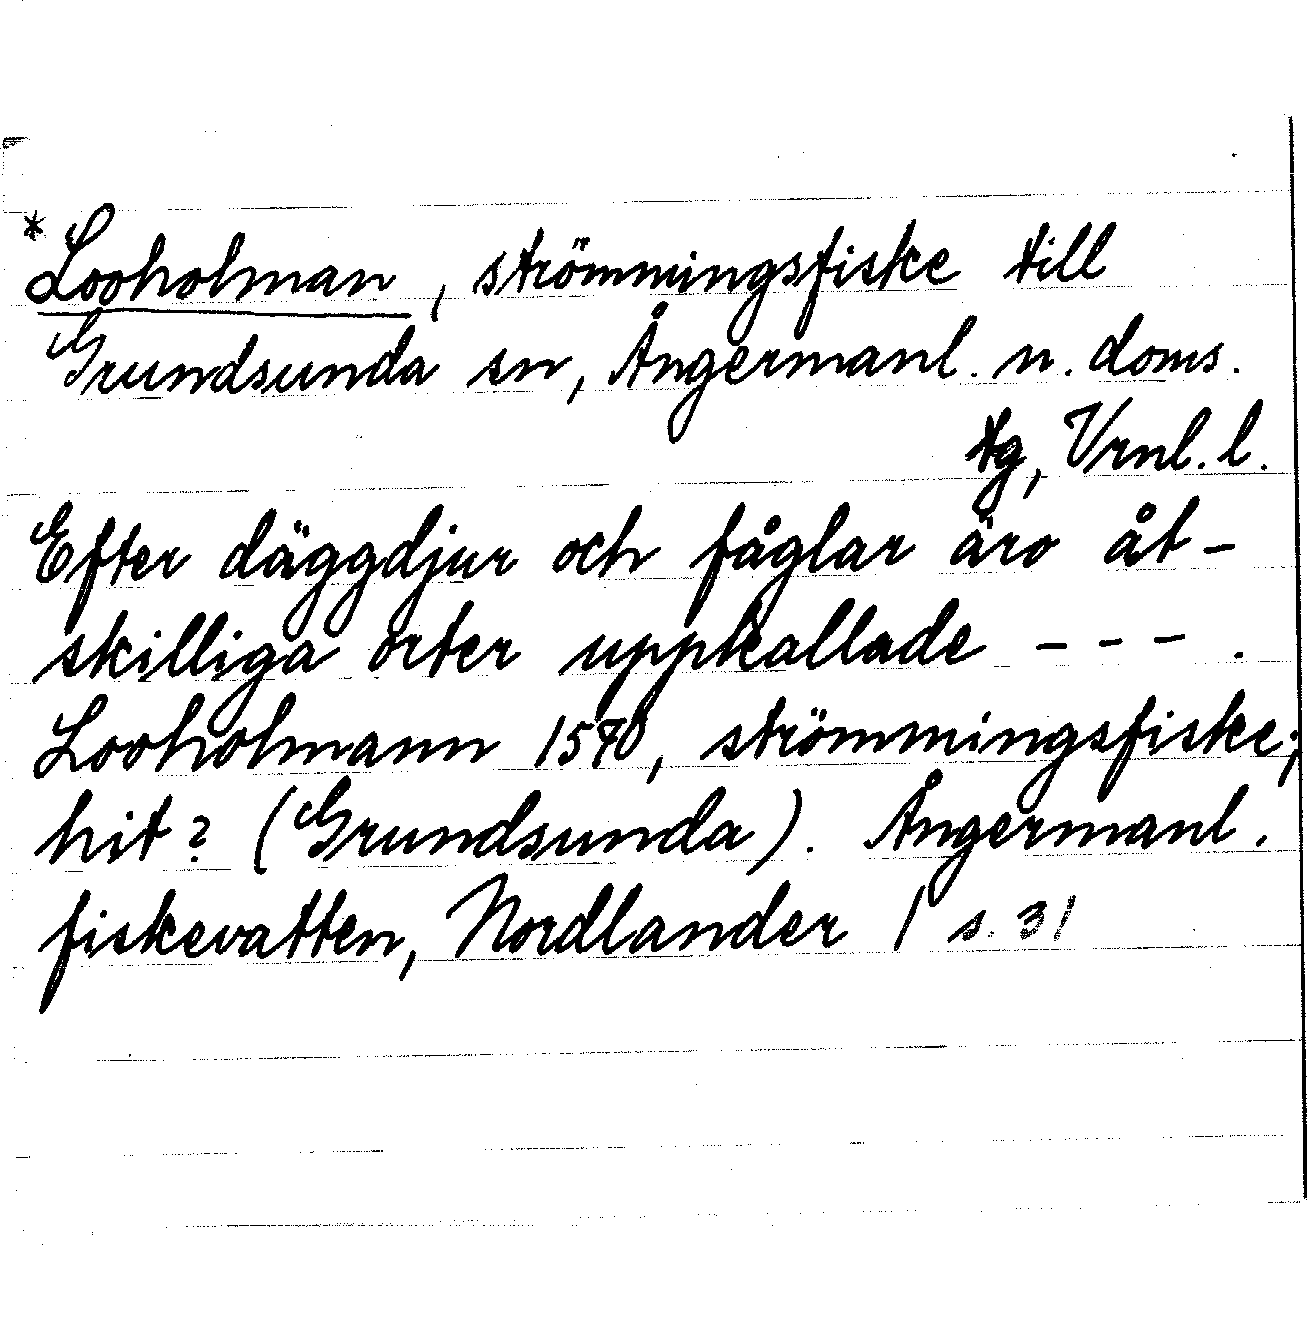 *Looholman, strömmingsfiske till
Grundsunda sn, Ångermanl. n. doms.
tg, Vrnl. l.
Efter däggdjur och fåglar äro åt-
skilliga orter uppkallade - - - .
Looholmann 1570, strömmingsfiske;
hit? (Grundsunda). Ångermanl.
fiskevatten, Nordlander / s. 31